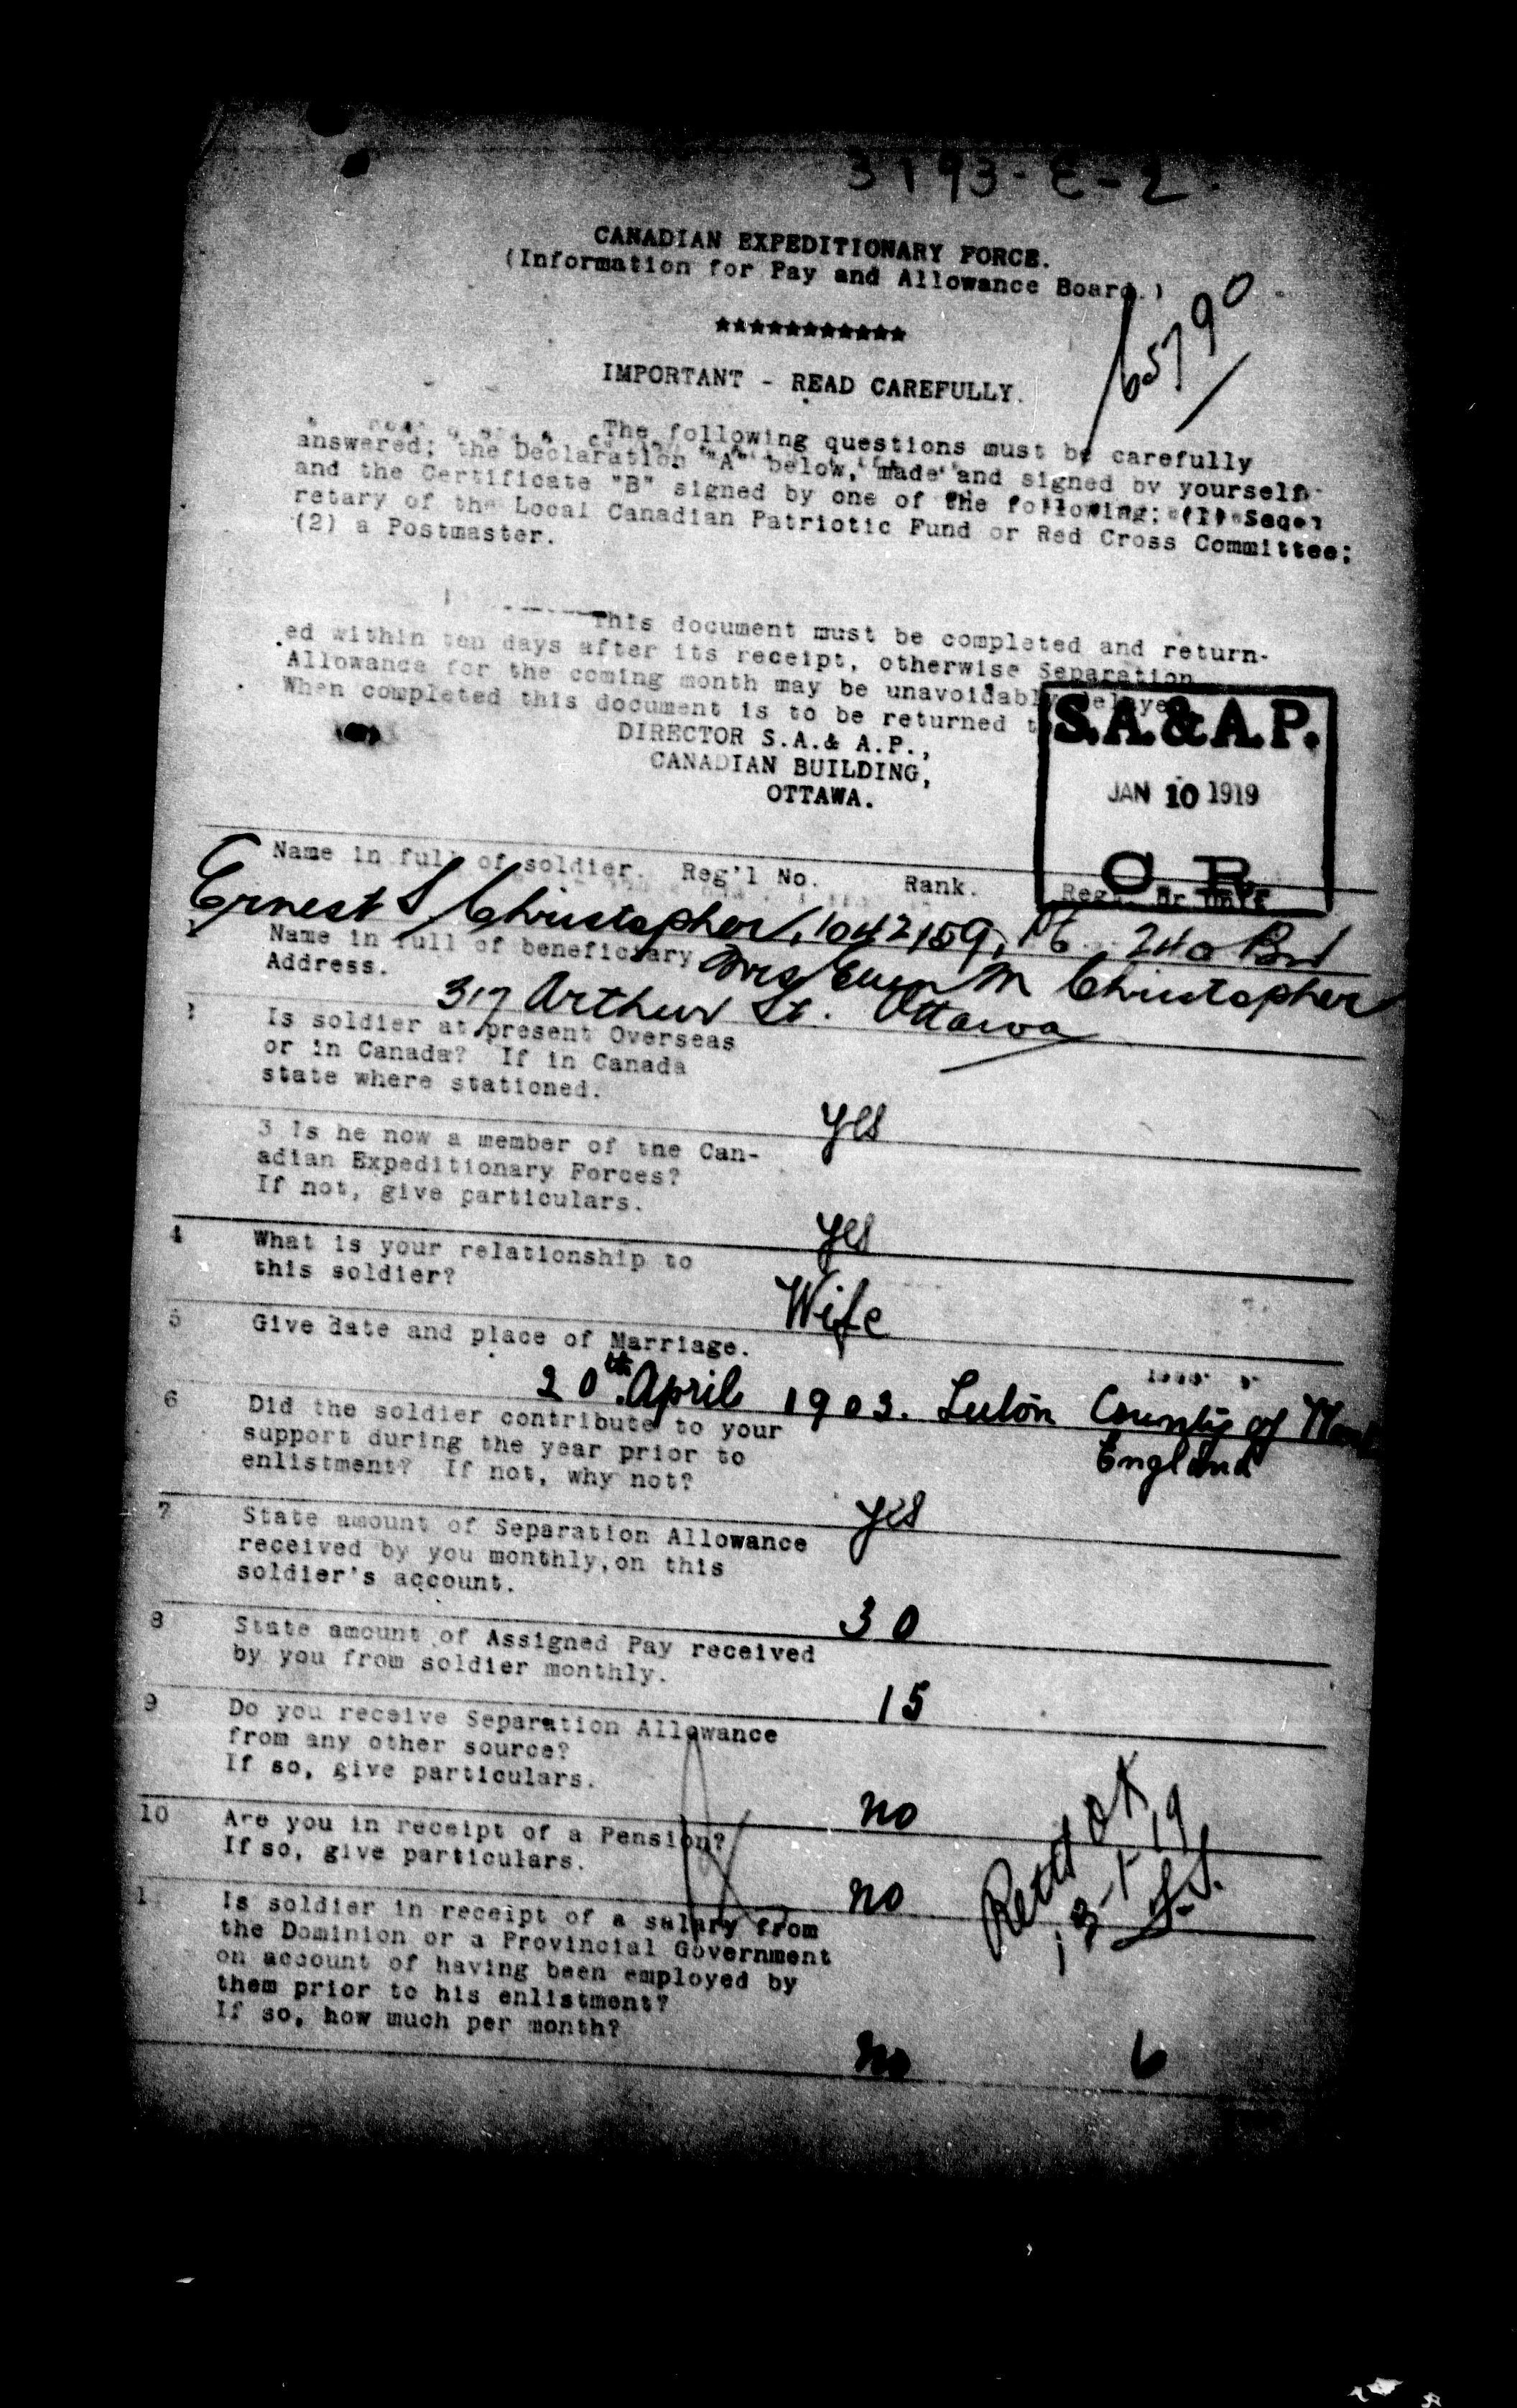 3193-E-2.
CANADIAN EXPEDITIONARY FORCE.
(Information for Pay and Allowance Board.)
65790
***********
IMPORTANT - READ CAREFULLY.
The following questions must be carefully
answered; the Declaration "A" below, made and signed by yourself
and the Certificate "B" signed by one of the following: (1) Sec-
retary of the Local Canadian Patriotic Fund or Red Cross Committee;
(2) a Postmaster.
This document must be completed and return-
ed within ten days after its receipt, otherwise Separation
Allowance for the coming month may be unavoidably delayed
When completed this document is to be returned t
DIRECTOR S.A.& A.P.,
CANADIAN BUILDING,
OTTAWA.
S.A.&A.P.
JAN 10 1919
C. R.
Name in full of soldier. Reg'l No. Rank. Regt. or Unit
Ernest S Christopher, 1042159, Pte. 240 Bn
Name in full of beneficiary Mrs M Christopher
Address. 317 Arthur St. Ottawa
Is soldier at present Overseas
or in Canada? If in Canada
state where stationed.
yes
3 Is he now a member of the Can-
adian Expeditionary Forces?
If not, give particulars.
yes
4 What is your relationship to
this soldier?
Wife
5 Give date and place of Marriage.
20th April 1903. Luton County of
England
6 Did the soldier contribute to your
support during the year prior to
enlistment? If not, why not?
yes
7 State amount of Separation Allowance
received by you monthly, on this
soldier's account.
30
8 State amount of Assigned Pay received
by you from soldier monthly.
15
9 Do you receive Separation Allowance
from any other source?
If so, give particulars.
no
10 Are you in receipt of a Pension?
If so, give particulars.
no
OK
13-1-19
1 Is soldier in receipt of a salary from
the Dominion or a Provincial Government
on account of having been employed by
them prior to his enlistment?
If so, how much per month?
no
6